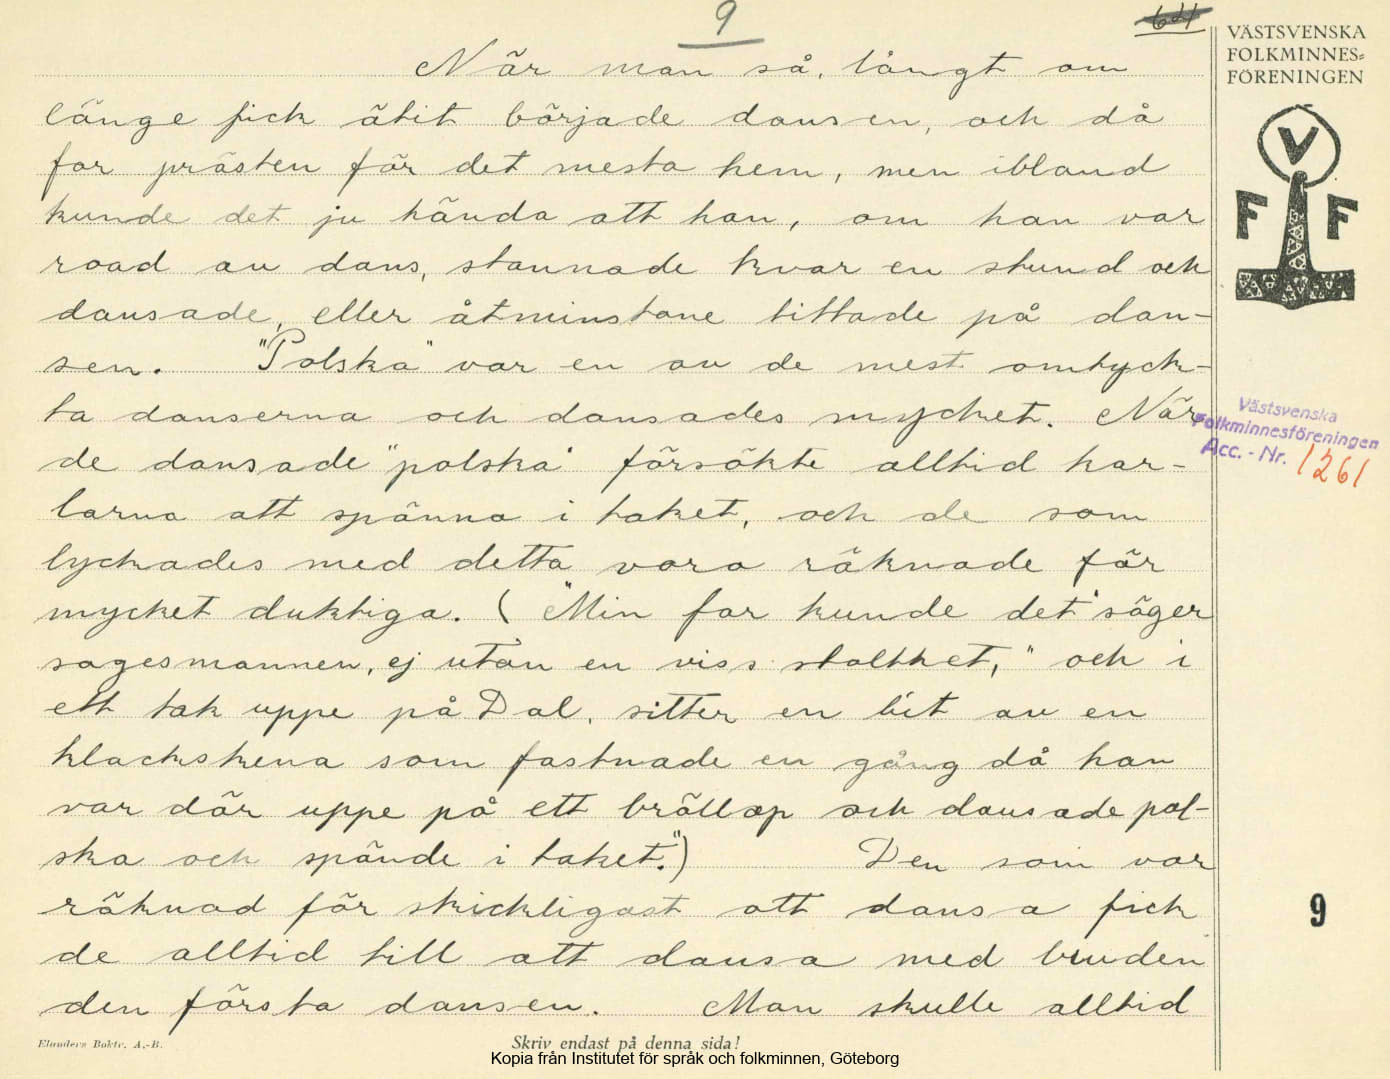 9
641
VÄSTSVENSKA
FOLKMINNES=
FÖRENINGEN
V
F F
När man så, långt om
länge fick ätit började dansen, och då
for prästen för det mesta hem, men ibland
kunde det ju hända att han, om han var
road av dans, stannade kvar en stund och
dansade, eller åtminstone tittade på dan-
sen. "Polska" var en av de mest omtyck-
ta danserna och dansades mycket. När
de dansade "polska" försökte alltid kar-
larna att spänna i taket, och de som
lyckades med detta voro räknade för
mycket duktiga. ( "Min far kunde det" säger
sagesmannen, ej utan en viss stolthet, " och i
ett tak uppe på Dal, sitter en bit av en
klackskena som fastnade en gång då han
var där uppe på ett bröllop och dansade pol-
ska och spände i taket.") Den som var
räknad för skickligast att dansa fick
de alltid till att dansa med bruden
den första dansen. Man skulle alltid
Västsvenska
Folkminnesföreningen
Acc. - Nr. 1261
9
Elanders Boktr. A.-B.
Skriv endast på denna sida!
Kopia från Institutet för språk och folkminnen, Göteborg